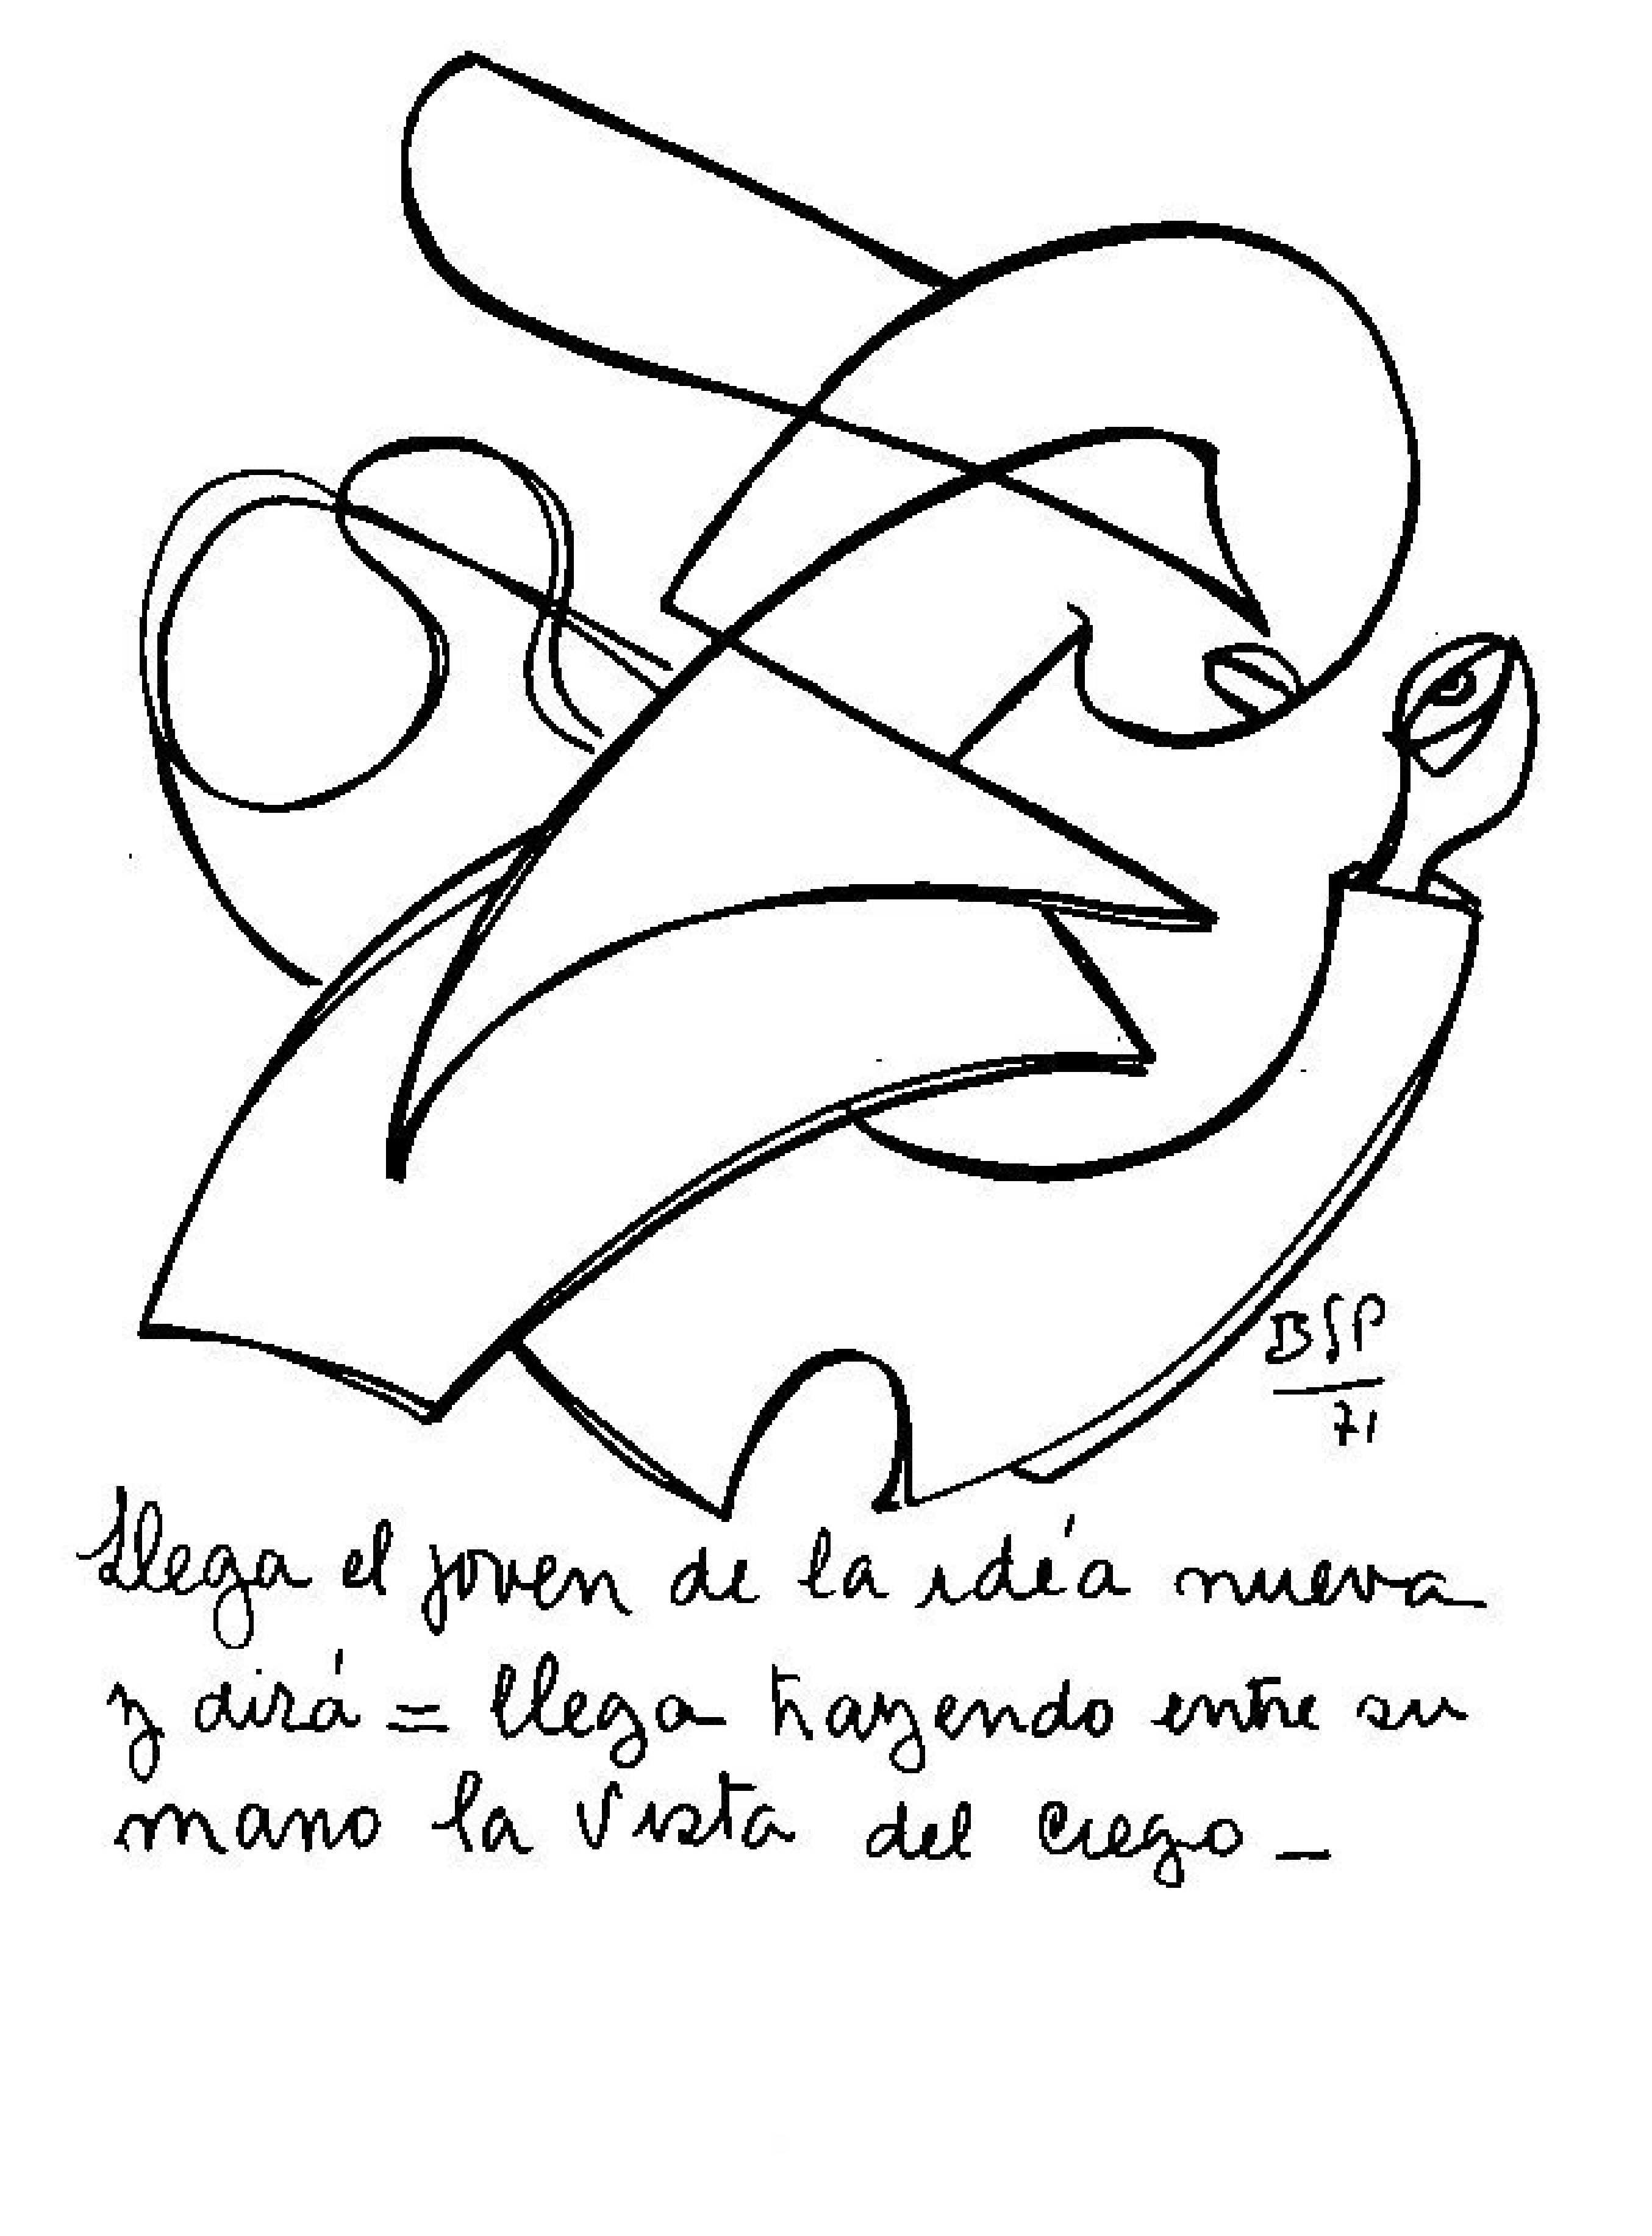 BSP
71
Llega el joven de la idéa nueva
y dirá = llega trayendo entre su
mano la Vista del Ciego _